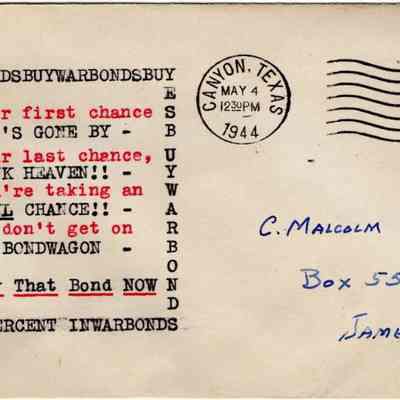 DSBUYWARBONDSBUY
ESBUYWARBONDS
r first chance
'S GONE BY -
r last chance,
K HEAVEN!! -
're taking an
L CHANCE!! -
don't get on
BONDWAGON -
That Bond NOW
ERCENT INWARBONDS
CANYON, TEXAS
MAY 4
1230PM
1944
C. MALCOLM
Box 55
JAME